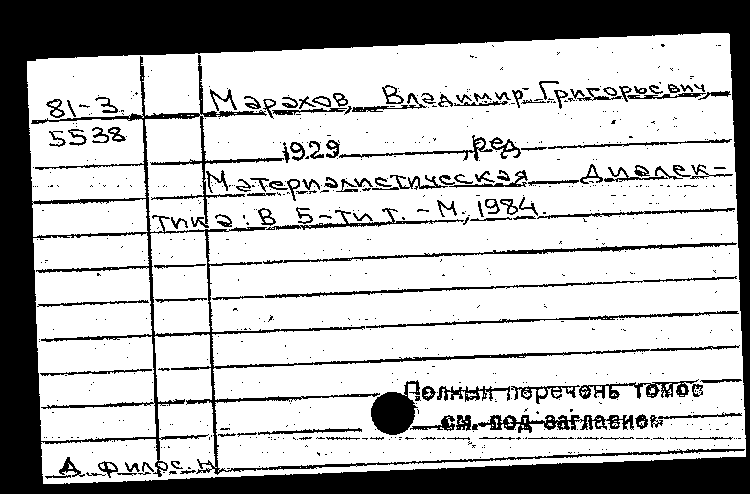 81-3
5538
Марахов, Владимир Григорьевич,
1929 , ред.
Материалистическая диалек-
тика: В 5-ти т. - М., 1984.
Полный перечень томов
см. под заглавием